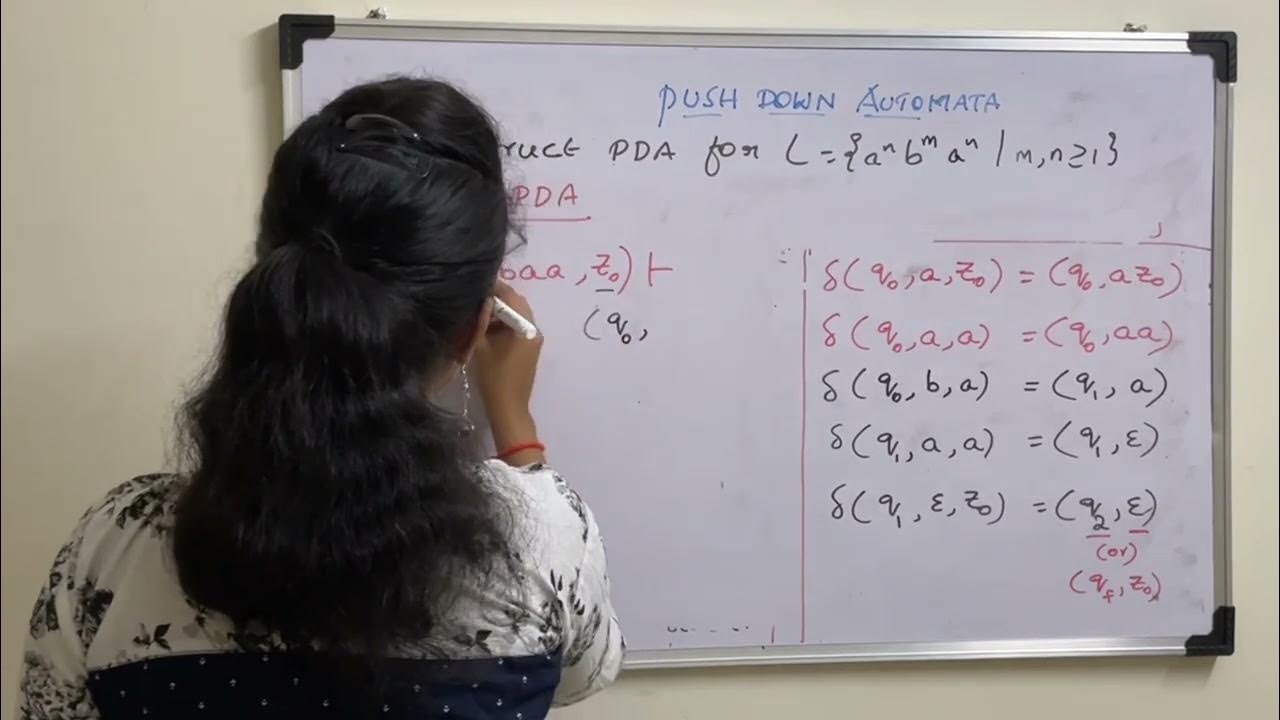 PUSH DOWN AUTOMATA
ruct PDA for L = {aⁿ bᵐ aⁿ / m,n≥1}
PDA
baa , z₀) ⊢
(q₀,
δ(q₀, a, z₀) = (q₀, a z₀)
δ(q₀, a, a) = (q₀, aa)
δ(q₀, b, a) = (q₁, a)
δ(q₁, a, a) = (q₁, ε)
δ(q₁, ε, z₀) = (q₂, ε)
(or)
(q_f, z₀)